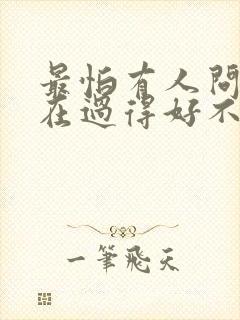 最怕有人問
在過得好不
一筆飛天